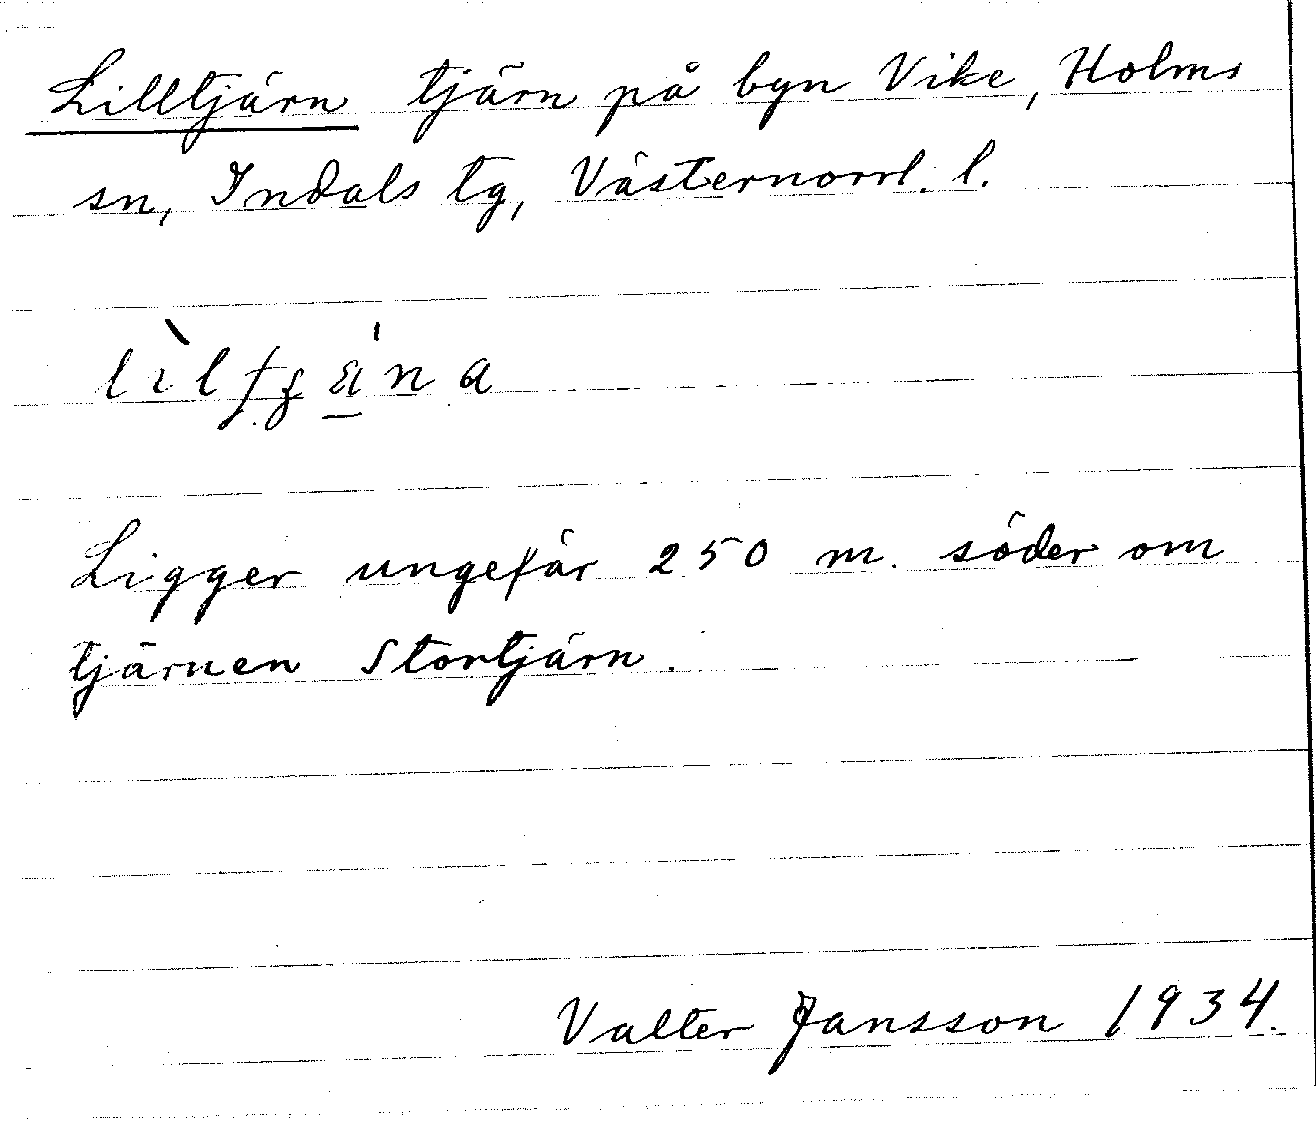 Lilltjärn tjärn på byn Vike, Holms
sn, Indals tg, Västernorrl. l.
Ligger ungefär 250 m. söder om
tjärnen Stortjärn.
Valter Jansson 1934.